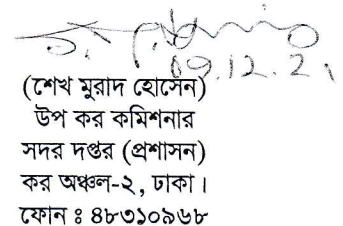 ০৭.১২.২১
(শেখ মুরাদ হোসেন)
উপ কর কমিশনার
সদর দপ্তর (প্রশাসন)
কর অঞ্চল-২, ঢাকা।
ফোন ঃ ৪৮৩১০৯৬৮